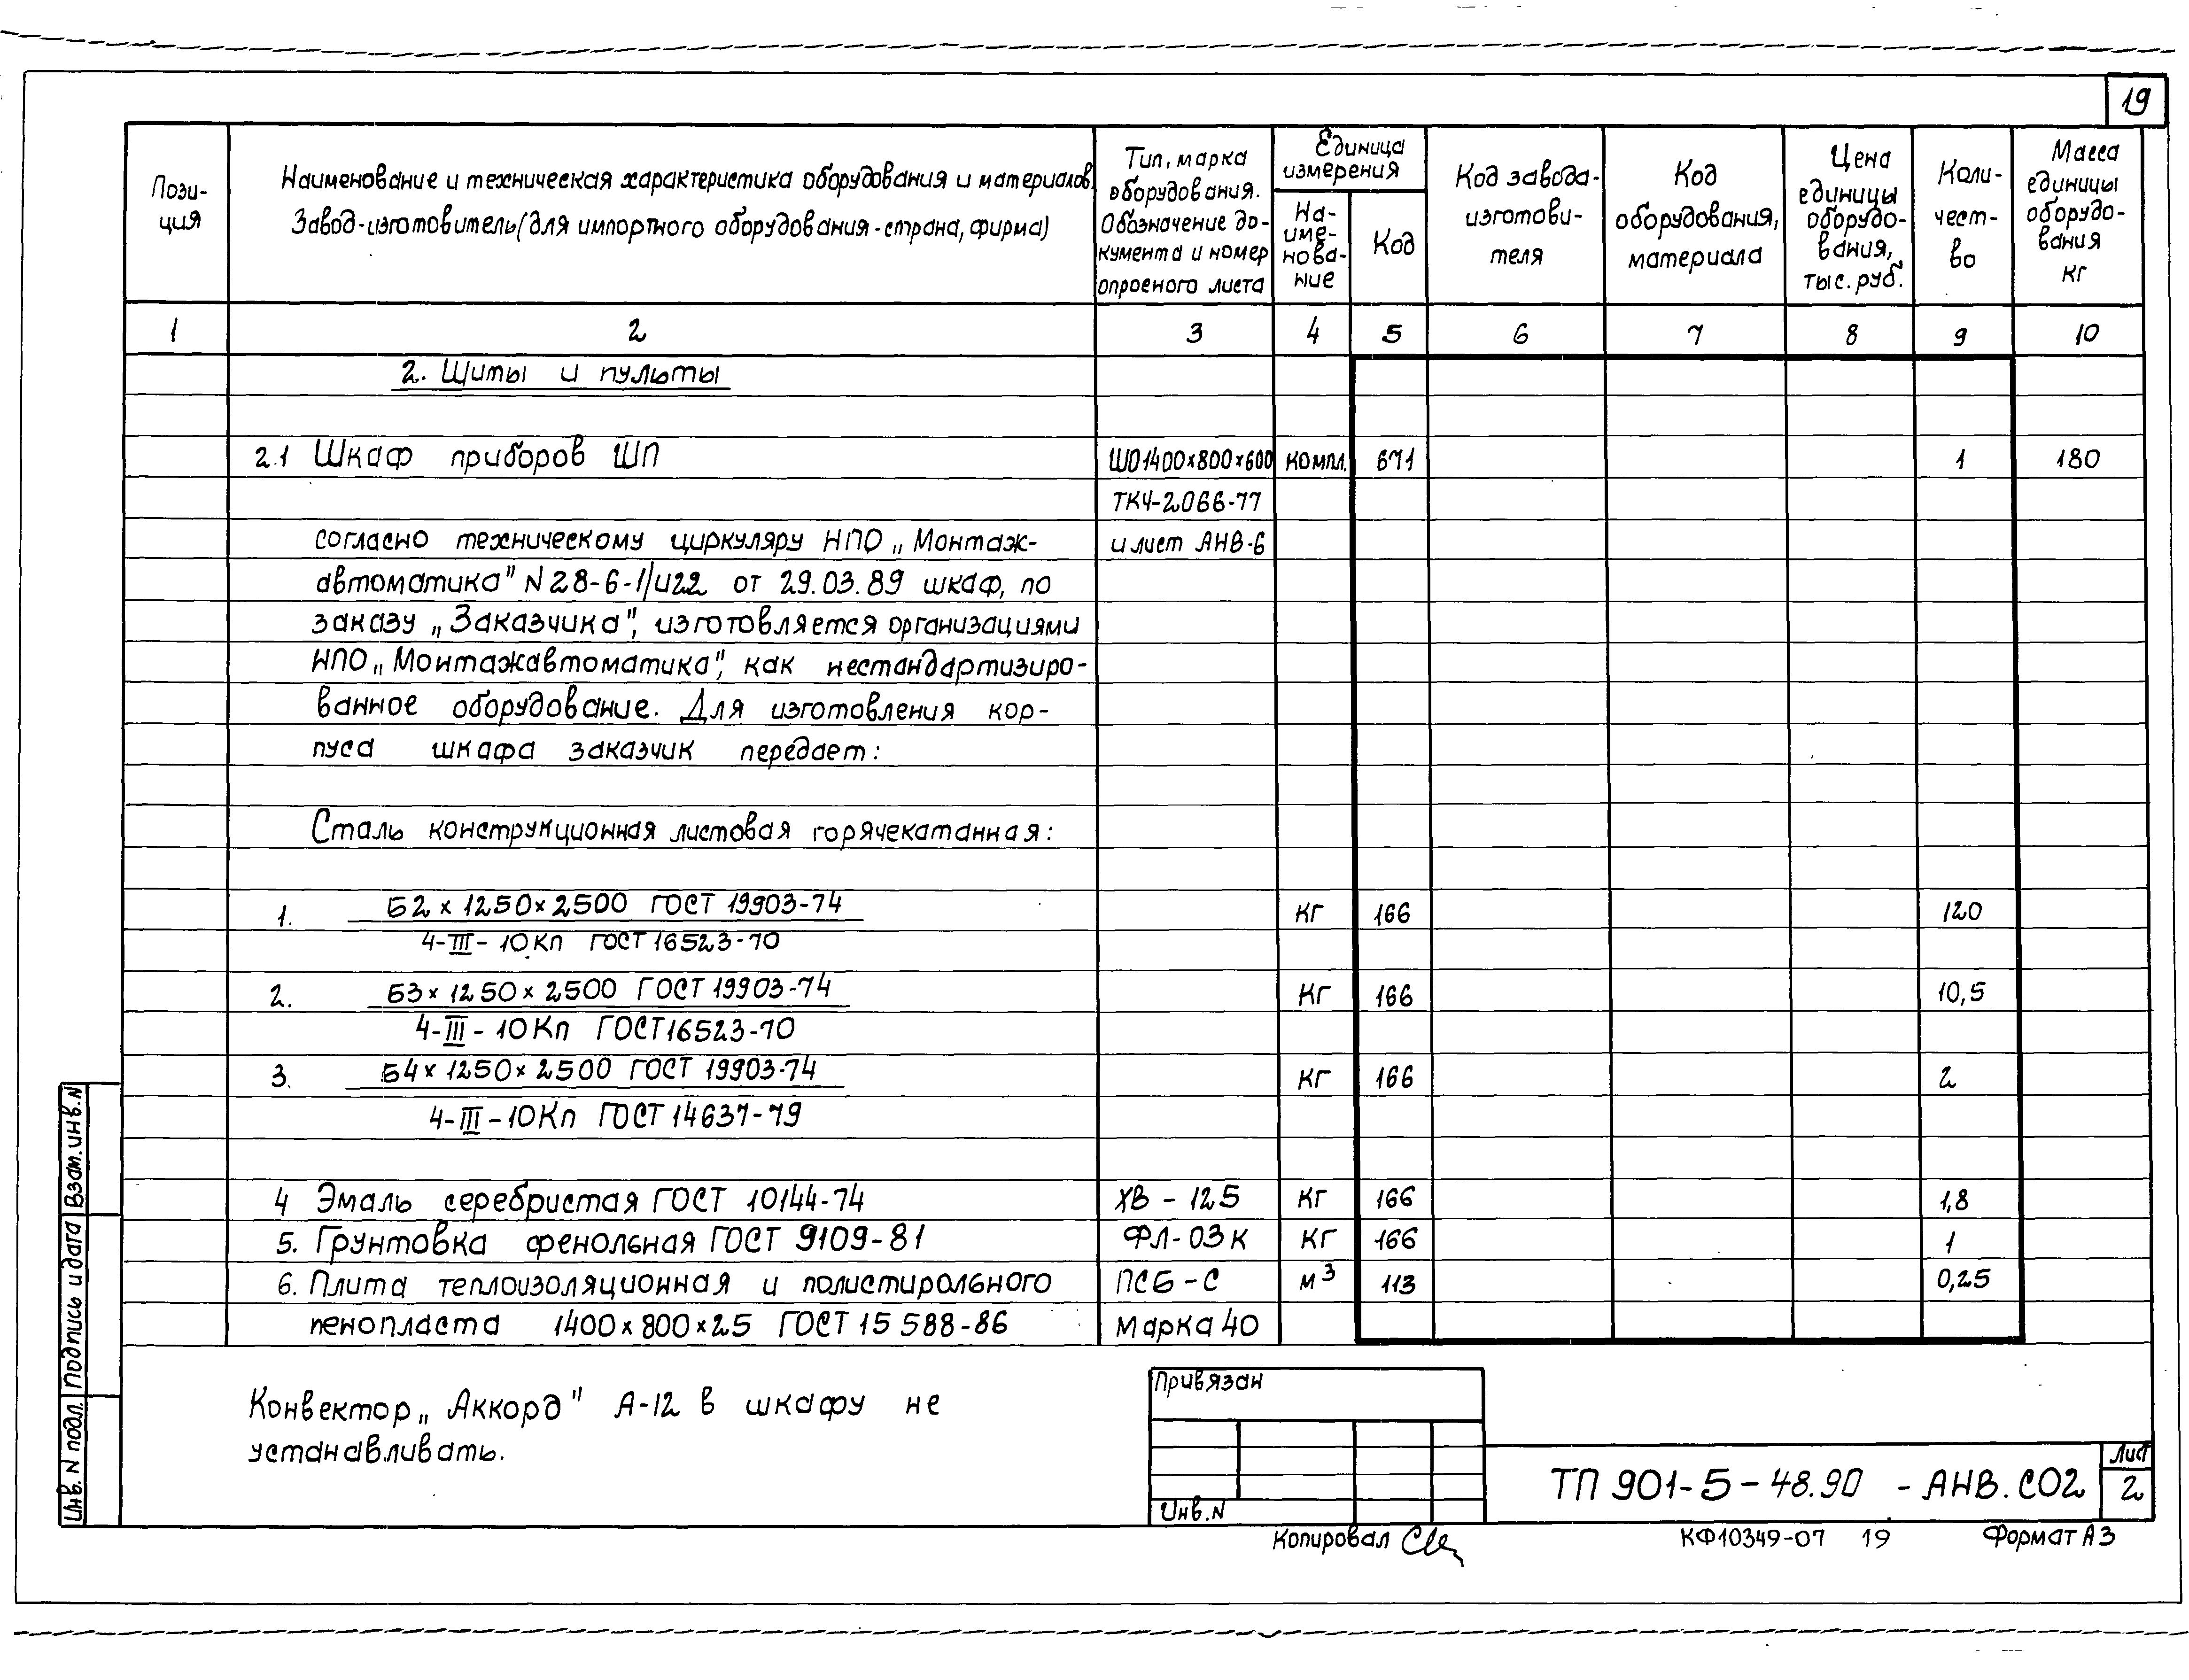 19
Пози-
ция
Наименование и техническая характеристика оборудования и материалов.
Завод-изготовитель (для импортного оборудования-страна, фирма)
Тип, марка
оборудования.
Обозначение до-
кумента и номер
опросного листа
Единица
измерения
На-
име-
нова-
ние
Код
Код завода-
изготови-
теля
Код
оборудования,
материала
Цена
единицы
оборудо-
вания,
тыс. руб.
Коли-
чест-
во
Масса
единицы
оборудо-
вания
кг
1 2 3 4 5 6 7 8 9 10
2. Щиты и пульты
2.1 Шкаф приборов ШП ШО1400×800×600 компл. 671 1 180
ТК4-2066-77
согласно техническому циркуляру НПО „Монтаж- и лист АНВ-6
автоматика" N 28-6-1/и22 от 29.03.89 шкаф, по
заказу „Заказчика", изготовляется организациями
НПО „Монтажавтоматика", как нестандартизиро-
ванное оборудование. Для изготовления кор-
пуса шкафа заказчик передает:
Сталь конструкционная листовая горячекатанная:
1. Б2 × 1250 × 2500 ГОСТ 19903-74 кг 166 120
4-III-10Кп ГОСТ 16523-70
2. Б3 × 1250 × 2500 ГОСТ 19903-74 кг 166 10,5
4-III-10Кп ГОСТ 16523-70
3. Б4 × 1250 × 2500 ГОСТ 19903-74 кг 166 2
4-III-10Кп ГОСТ 14637-79
4 Эмаль серебристая ГОСТ 10144-74 ХВ-125 кг 166 1,8
5. Грунтовка фенольная ГОСТ 9109-81 ФЛ-03К кг 166 1
6. Плита теплоизоляционная и полистирольного ПСБ-С м³ 113 0,25
пенопласта 1400×800×25 ГОСТ 15588-86 марка 40
Конвектор „Аккорд" А-12 в шкафу не
устанавливать.
Привязан
Инв.N
ТП 901-5-48.90 -АНВ.СО2
Лист
2
Копировал
КФ10349-07 19
Формат А3
Взам.инв.N
Подпись и дата
Инв. N подл.